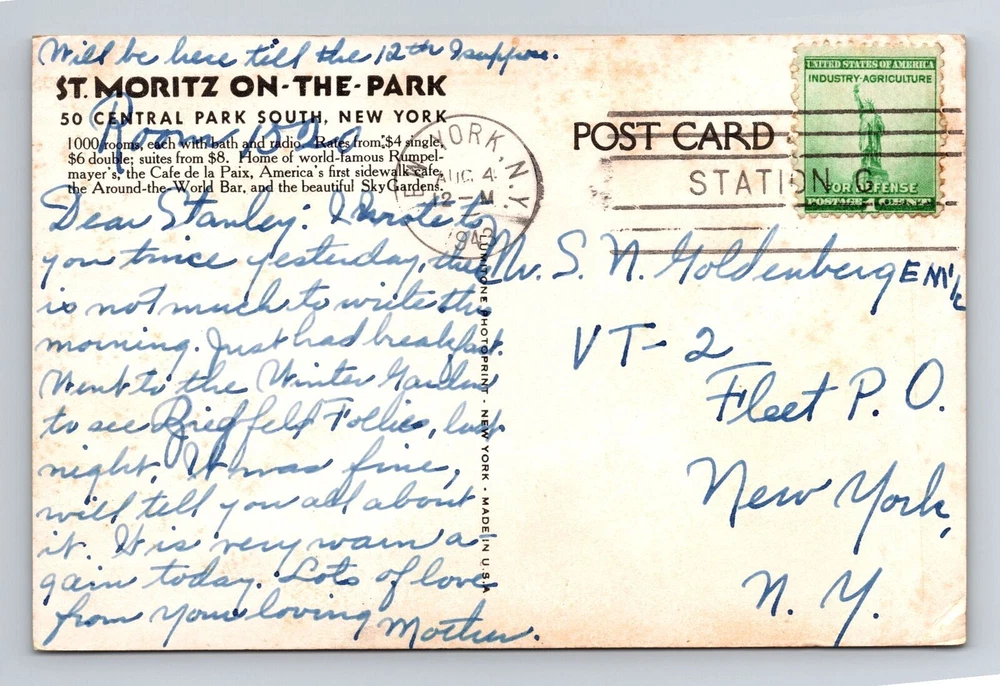 Will be here till the 12th I suppose.
ST. MORITZ ON-THE-PARK
50 CENTRAL PARK SOUTH, NEW YORK
Room
1000 rooms, each with bath and radio. Rates from $4 single,
$6 double; suites from $8. Home of world-famous Rumpel-
mayer's, the Cafe de la Paix, America's first sidewalk cafe,
the Around-the-World Bar, and the beautiful Sky Gardens.
Dear Stanley: I wrote to
you twice yesterday, there
is not much to write this
morning. Just had breakfast.
Went to the Winter Garden
to see Ziegfeld Follies, last
night. It was fine,
will tell you all about
it. It is very warm a-
gain today. Lots of love
from your loving Mother.
LUMITONE PHOTOPRINT · NEW YORK · MADE IN U.S.A
POST CARD
NEW YORK, N.Y.
AUG 4
12-M
STATION G
UNITED STATES OF AMERICA
INDUSTRY·AGRICULTURE
FOR DEFENSE
POSTAGE 1 CENT
Mr. S. N. Goldenberg EM 1/c
VT-2
Fleet P. O.
New York,
N. Y.